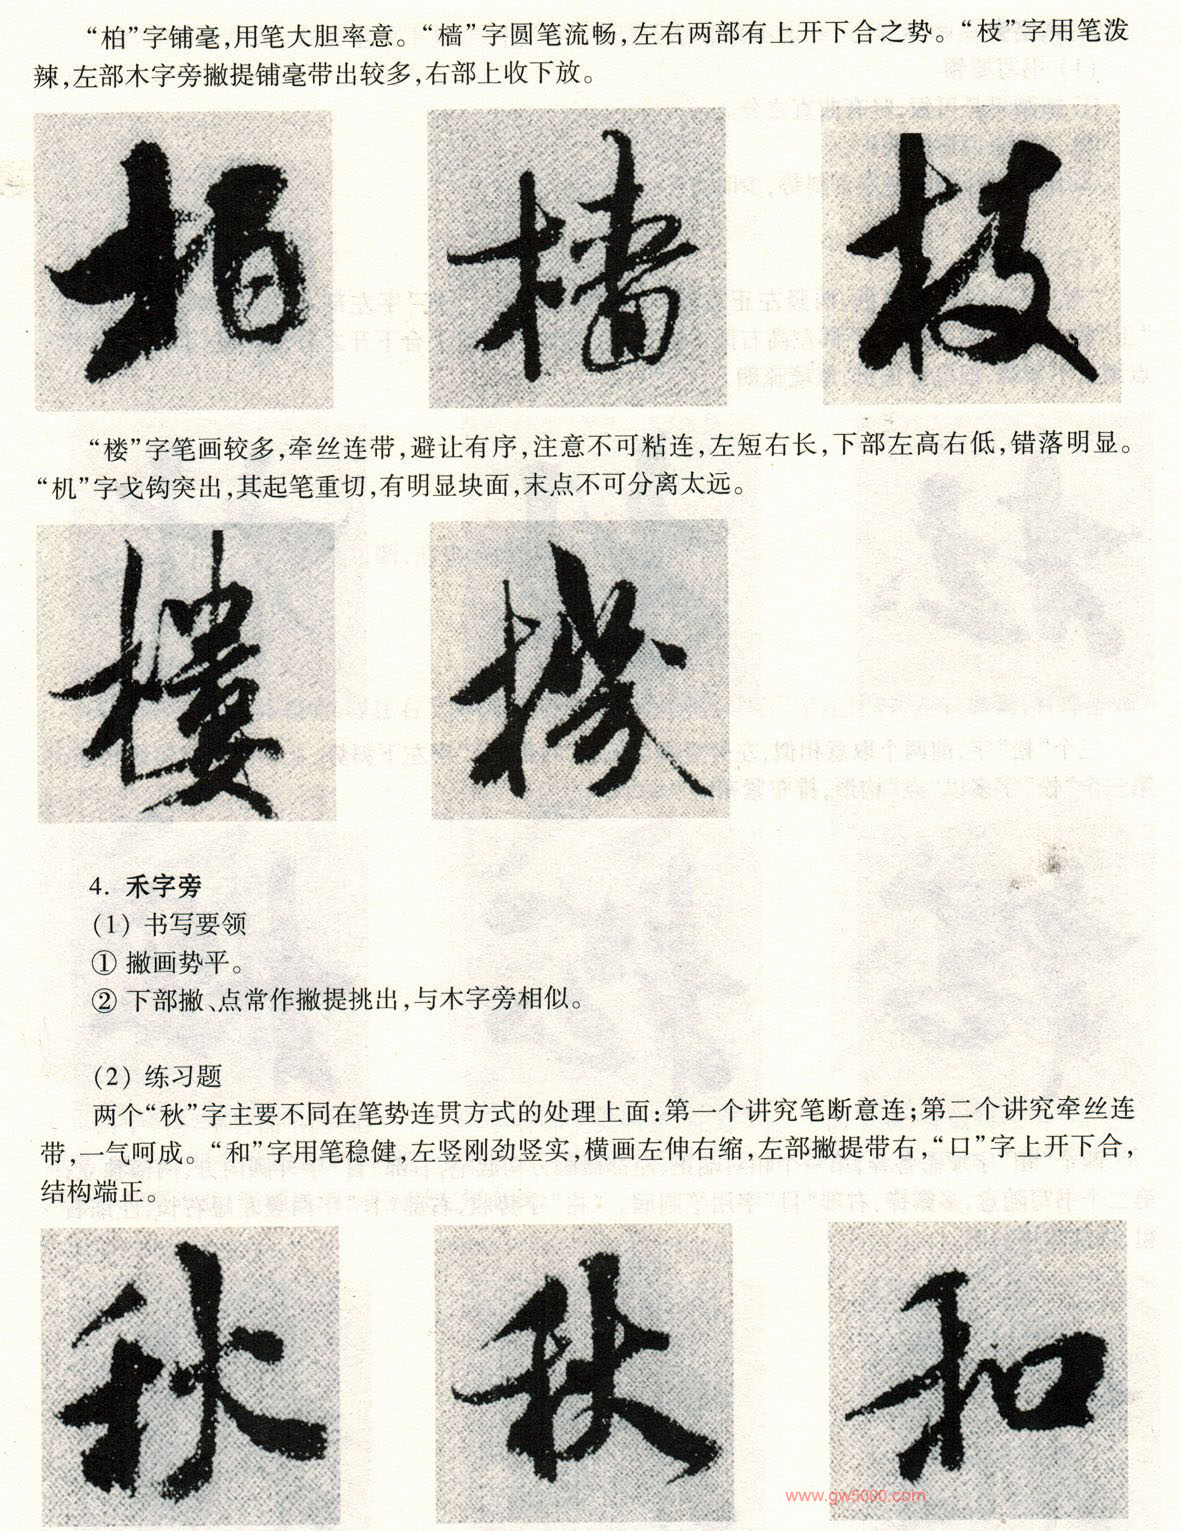 “柏”字铺毫,用笔大胆率意。“樯”字圆笔流畅,左右两部有上开下合之势。“枝”字用笔泼
辣,左部木字旁撇提铺毫带出较多,右部上收下放。
柏 樯 枝
“楼”字笔画较多,牵丝连带,避让有序,注意不可粘连,左短右长,下部左高右低,错落明显。
“机”字戈钩突出,其起笔重切,有明显块面,末点不可分离太远。
樓 機
4. 禾字旁
(1) 书写要领
① 撇画势平。
② 下部撇、点常作撇提挑出,与木字旁相似。
(2) 练习题
两个“秋”字主要不同在笔势连贯方式的处理上面:第一个讲究笔断意连;第二个讲究牵丝连
带,一气呵成。“和”字用笔稳健,左竖刚劲竖实,横画左伸右缩,左部撇提带右,“口”字上开下合,
结构端正。
秋 秋 和
www.gw5000.com